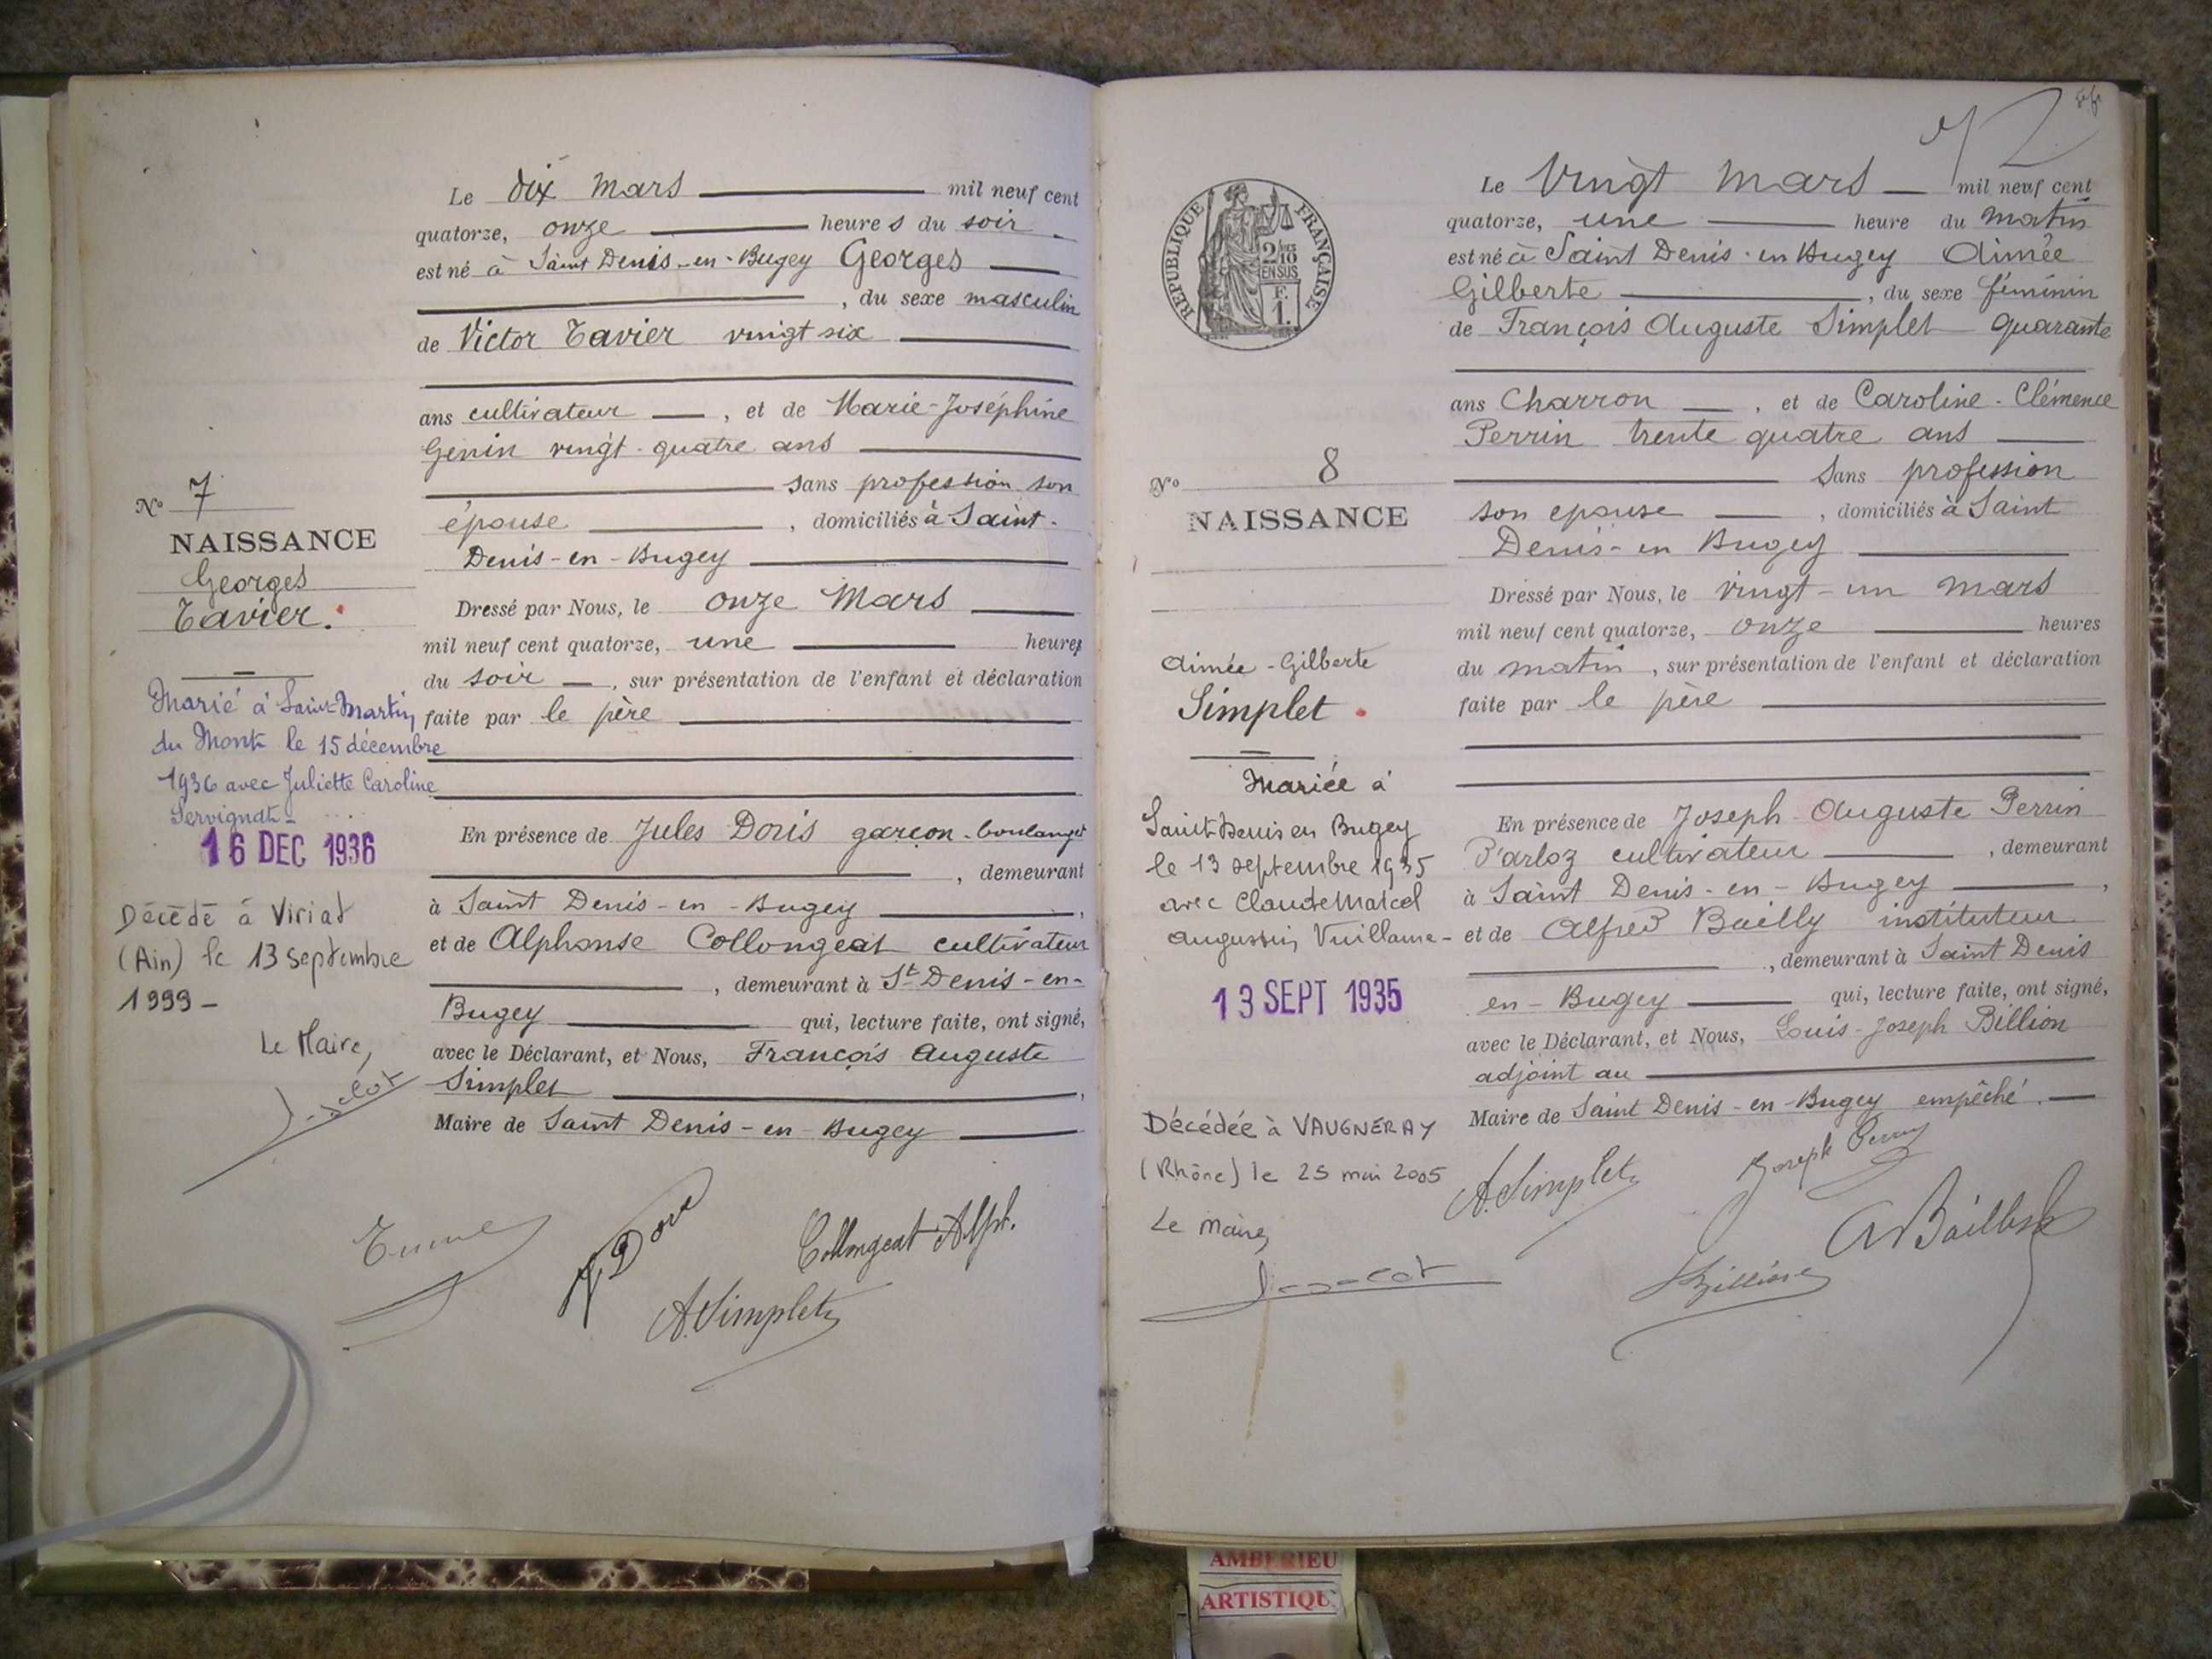 Le dix mars mil neuf cent
quatorze, onze heures du soir
est né à Saint Denis-en-Bugey Georges
, du sexe masculin
de Victor Tavier vingt six
ans cultivateur , et de Marie-Joséphine
Genin vingt-quatre ans
sans profession son
épouse , domiciliés à Saint-
Denis-en-Bugey
Dressé par Nous, le onze Mars
mil neuf cent quatorze, une heures
du soir , sur présentation de l'enfant et déclaration
faite par le père
En présence de Jules Doris garçon-boulanger
, demeurant
à Saint Denis-en-Bugey ,
et de Alphonse Collongeat cultivateur
, demeurant à St Denis-en-
Bugey qui, lecture faite, ont signé,
avec le Déclarant, et Nous, François Auguste
Simplet ,
Maire de Saint Denis-en-Bugey
Collongeat Alph.
A. Simplet
No 7
NAISSANCE
Georges
Tavier.
Marié à Saint-Martin
du Mont le 15 décembre
1936 avec Juliette Caroline
Servignat-
16 DEC 1936
Décédé à Viriat
(Ain) le 13 septembre
1999-
Le Maire,
72
Le Vingt mars mil neuf cent
quatorze, une heure du matin
est né à Saint Denis-en Bugey Aimée
Gilberte , du sexe féminin
de François Auguste Simplet quarante
ans Charron , et de Caroline-Clémence
Perrin trente quatre ans
Sans profession
son épouse , domiciliés à Saint
Denis-en Bugey
Dressé par Nous, le vingt-un mars
mil neuf cent quatorze, onze heures
du matin , sur présentation de l'enfant et déclaration
faite par le père
En présence de Joseph-Auguste Perrin
D'arloz cultivateur , demeurant
à Saint Denis-en-Bugey ,
et de Alfred Bailly instituteur
, demeurant à Saint Denis
en-Bugey qui, lecture faite, ont signé,
avec le Déclarant, et Nous, Louis-Joseph Billion
adjoint au
Maire de Saint Denis-en-Bugey empêché.
A. Simplet
Joseph
A Bailly
Billion
REPUBLIQUE FRANÇAISE
2/10
EN SUS
F.
1.
No 8
NAISSANCE
Aimée-Gilberte
Simplet
Mariée à
Saint-Denis en Bugey
le 13 septembre 1935
avec Claude Marcel
Augustin Vuillame-
13 SEPT 1935
Décédée à VAUGNERAY
(Rhône) le 25 mai 2005
Le Maire,
AMBERIEU
ARTISTIQU